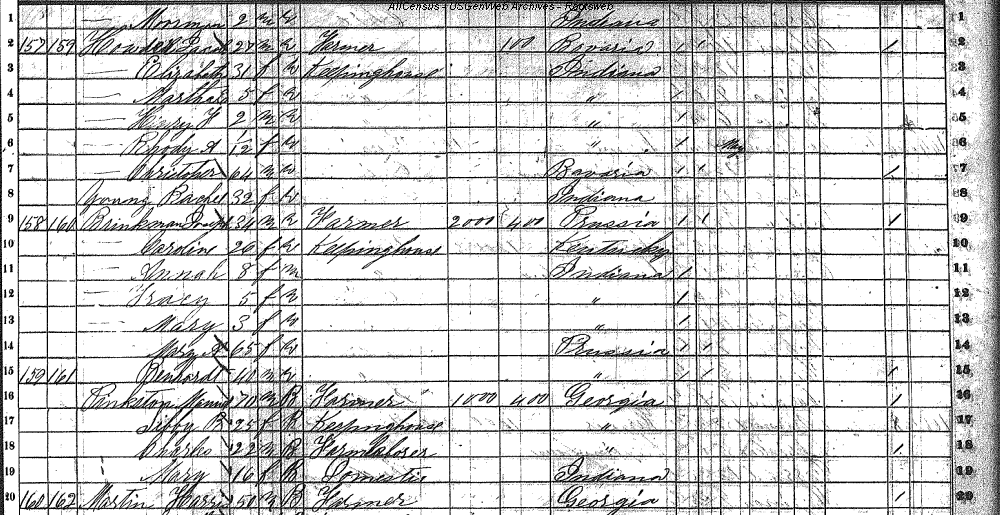 AllCensus - USGenWeb Archives - Rootsweb
1 — Moorman 2 m W Indiana 1
2 157 159 27 m W Farmer 100 Bavaria 1 1 1 2
3 — Elizabeth 31 f W Keepinghouse Indiana 3
4 — Martha 5 f W " 1 4
5 — Henry 2 m W " 1 5
6 — Rhody A 1/12 f W " 1 May 6
7 — Christopher 64 m W Bavaria 1 1 1 7
8 Young Rachel 32 f W Indiana 8
9 158 160 Brinkman Joseph 34 m W Farmer 2000 400 Prussia 1 1 1 9
10 — Caroline 26 f W Keepinghouse Kentucky 10
11 — Annah 8 f W Indiana 1 11
12 — Tracy 5 f W " 1 12
13 — Mary 3 f W " 1 13
14 — Mary A 65 f W Prussia 1 1 14
15 159 161 — Benhardt 40 m W " 1 1 1 15
16 Pankston 70 m B Farmer 1000 400 Georgia 1 16
17 — Sibby B 25 f B Keepinghouse " 1 17
18 — Charles 22 m B Farmlaborer " 1 18
19 — Mary 16 f B Domestic Indiana 19
20 160 162 Martin Harris 50 m B Farmer Georgia 1 20